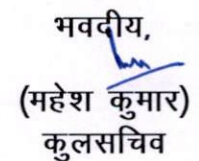 भवदीय,
(महेश कुमार)
कुलसचिव